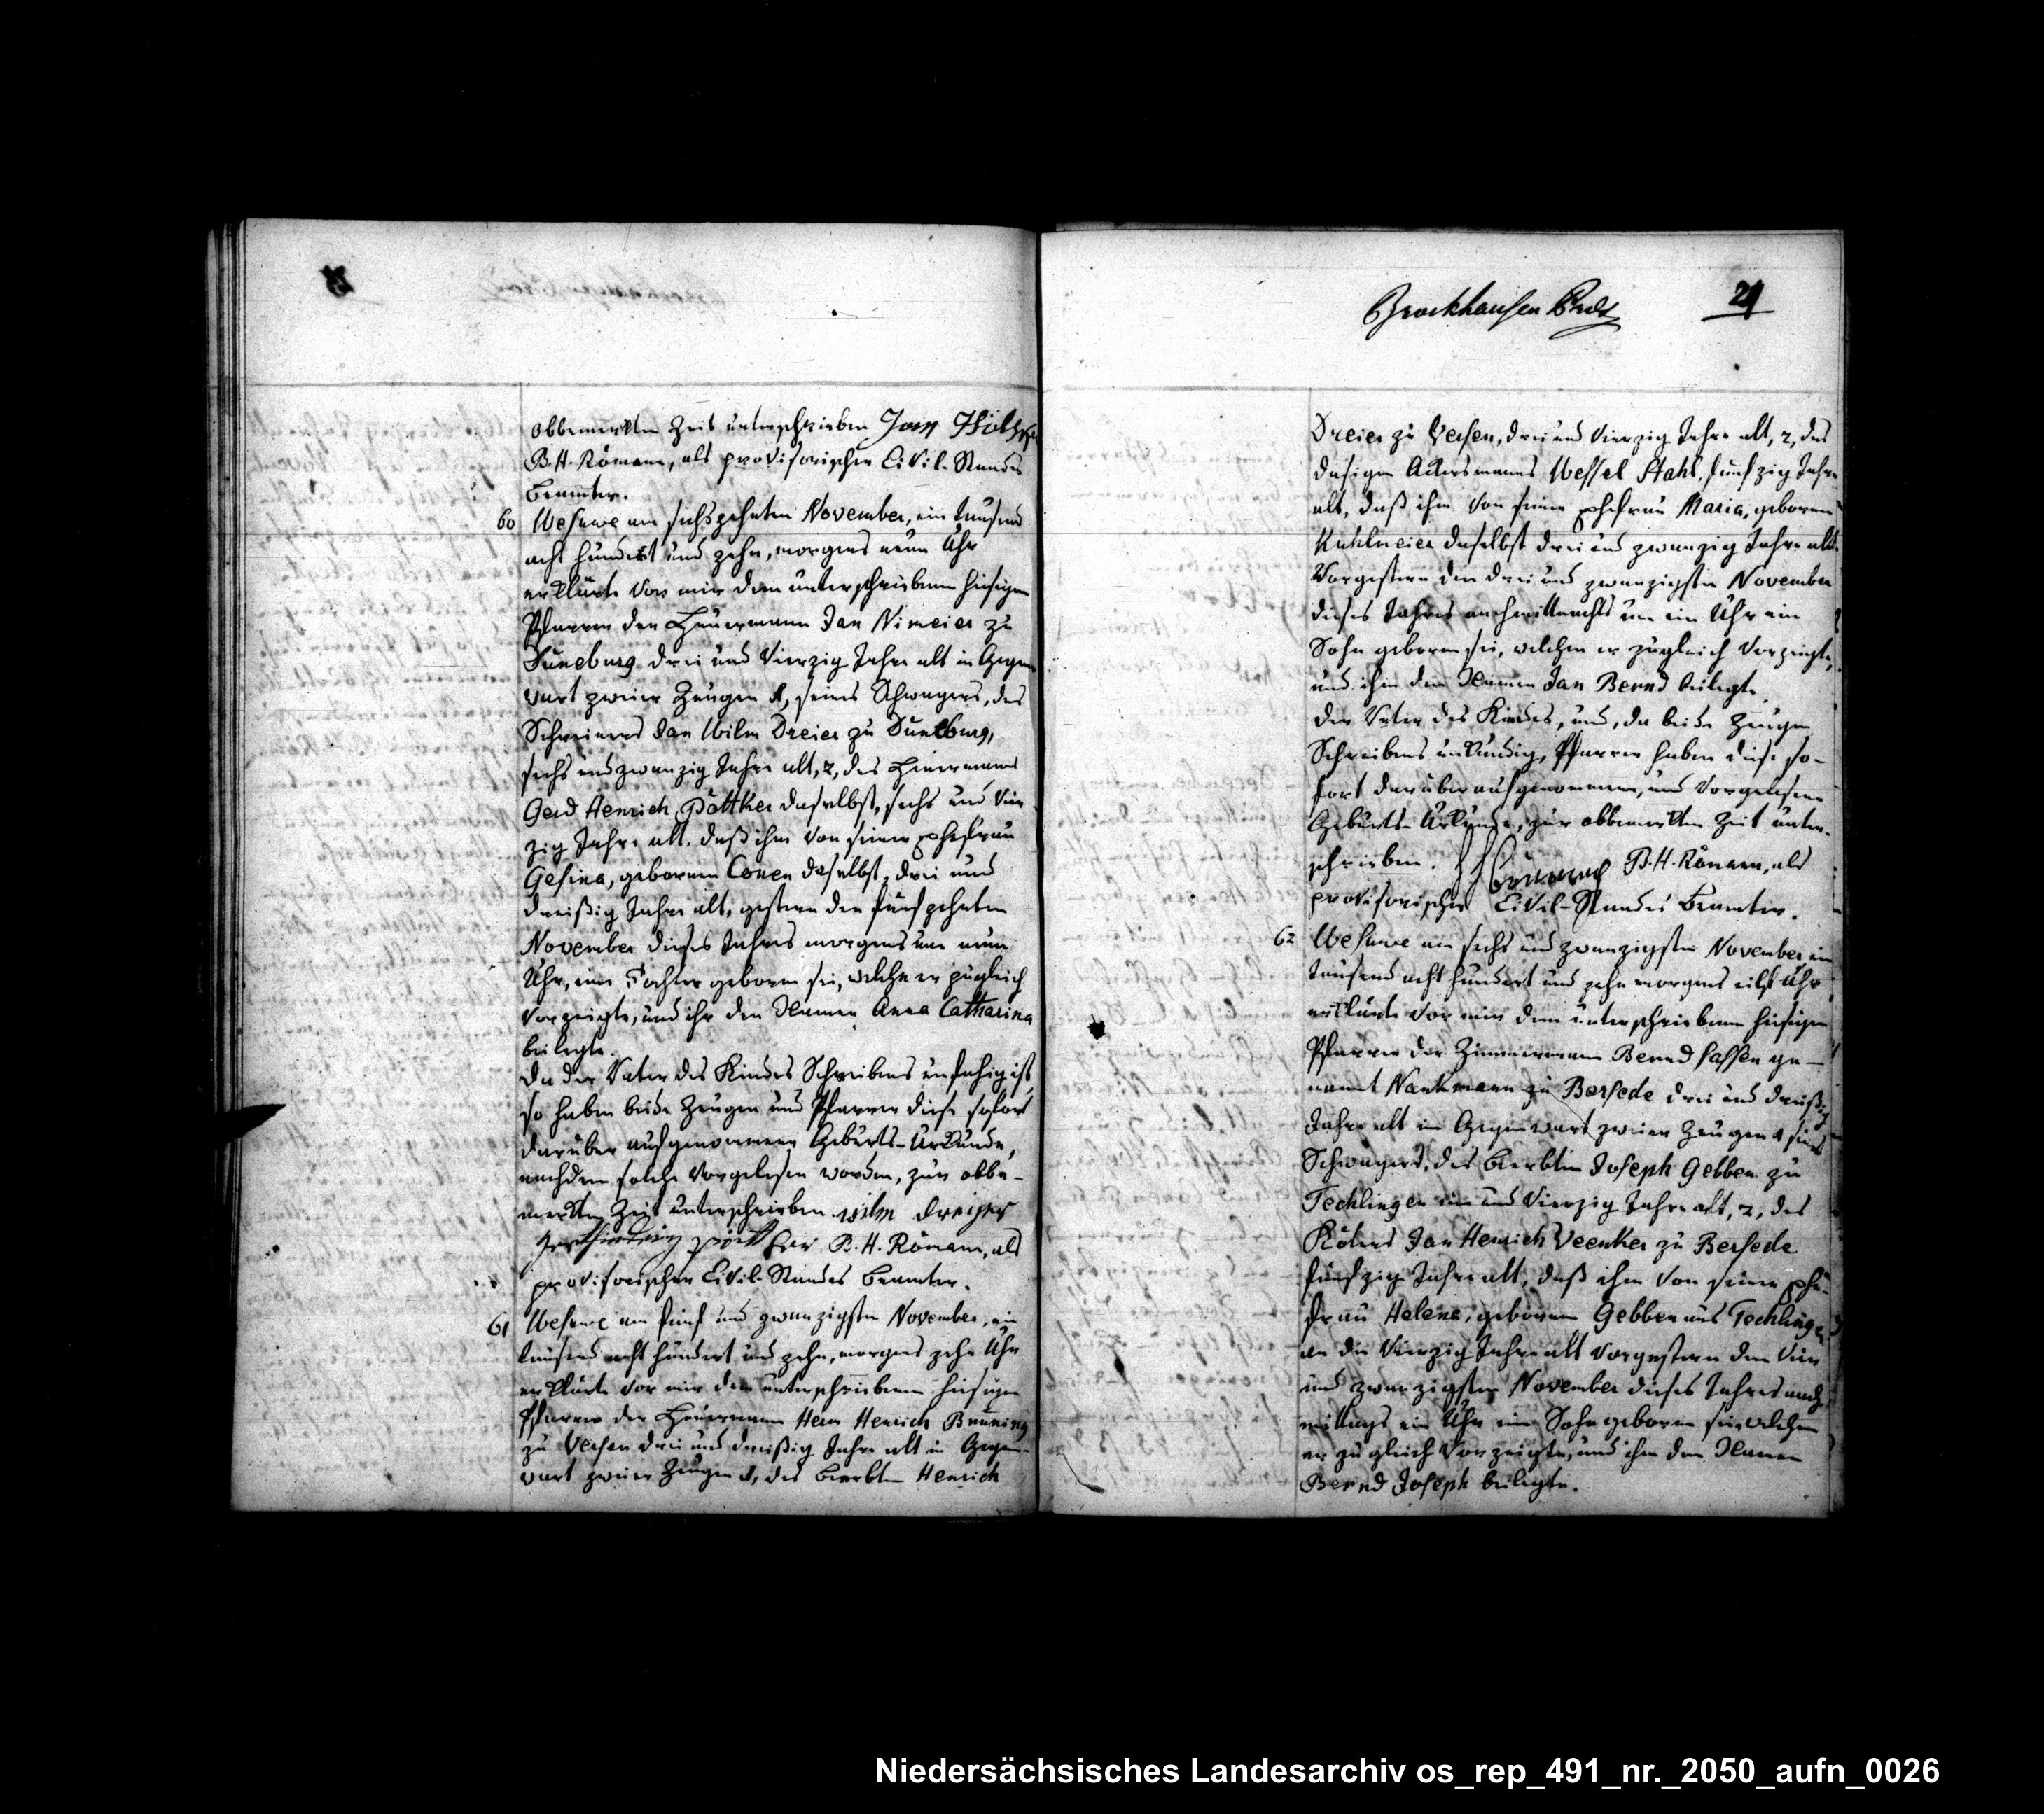 obbemerkten Zeit unterschrieben Jan
B. H. Römann, als provisorischer Civil-Standes
Beamter.
60 Wesuwe am sechszehnten November, ein tausend
acht hundert und zehn, morgens neun Uhr
erklärte vor mir dem unterschriebenen hiesigen
Pfarrer der Heuermann Jan Nimeier zu
Duneburg drei und vierzig Jahre alt in Gegen
wart zweier Zeugen 1, seines Schwagers, des
Schreiners Jan Wilm Dreier zu Duneburg,
sechs und zwanzig Jahre alt, 2, des Heuermanns
Gerd Henrich Pöttker daselbst, sechs und vier
zig Jahre alt, daß ihm von seiner Ehefrau
Gesina, gebornen Conen daselbst, drei und
dreißig Jahre alt, gestern den fünfzehnten
November dieses Jahres morgens um neun
Uhr, eine Tochter geboren sei, welche er zugleich
vorzeigte, und ihr den Namen Anna Catharina
beilegte.
Da der Vater des Kindes Schreibens unfahig ist,
so haben beide Zeugen und Pfarrer diese sofort
darüber aufgenommene Geburts-Urkunde,
nachdem solche vorgelesen worden, zur obbe-
merkten Zeit unterschrieben wilm dreijer
B. H. Römann, als
provisorischer Civil-Standes Beamter.
61 Wesuwe am fünf und zwanzigsten November, ein
tausend acht hundert und zehn, morgens zehn Uhr
erklärte vor mir dem unterschriebenen hiesigen
Pfarrer der Heuermann Herm Henrich Bruning
zu Versen drei und dreißig Jahre alt in Gegen-
wart zweier Zeugen 1, des Beerbten Henrich
Brockhausen
21
Dreier zu Versen, drei und vierzig Jahre alt, 2, des
dasigen Ackersmanns Wessel Stahl, fünfzig Jahre
alt, daß ihm von seiner Ehefrau Maria, gebornen
Kuhlmeier daselbst drei und zwanzig Jahre alt
vorgestern den drei und zwanzigsten November
dieses Jahres nachmittnachts um ein Uhr ein
Sohn geboren sei, welchen er zugleich vorzeigte,
und ihm den Namen Jan Bernd beilegte.
Der Vater des Kindes, und, da beide Zeugen
Schreibens unkundig, Pfarrer haben diese so-
fort darüber aufgenommene, und vorgelesene
Geburts-Urkunde, zur obbemerkten Zeit unter-
schrieben. B. H. Römann, als
provisorischer Civil-Standes Beamter.
62 Wesuwe am sechs und zwanzigsten November ein
tausend acht hundert und zehn morgens eilf Uhr
erklärte vor mir dem unterschriebenen hiesigen
Pfarrer der Zimmermann Bernd Sassen ge-
nannt Nankmann zu Bersede drei und dreißig
Jahre alt in Gegenwart zweier Zeugen 1 seines
Schwagers, des Beerbten Joseph Gebben zu
Techlingen ein und vierzig Jahre alt, 2, des
Köters Jan Henrich Veenker zu Bersede
fünfzig Jahre alt, daß ihm von seiner Ehe-
frau Helena, gebornen Gebben aus Techlingen
an die vierzig Jahre alt vorgestern den vier
und zwanzigsten November dieses Jahres nach
mittags ein Uhr ein Sohn geboren sei welchen
er zugleich vorzeigte, und ihm den Namen
Bernd Joseph beilegte.
Niedersächsisches Landesarchiv os_rep_491_nr._2050_aufn_0026